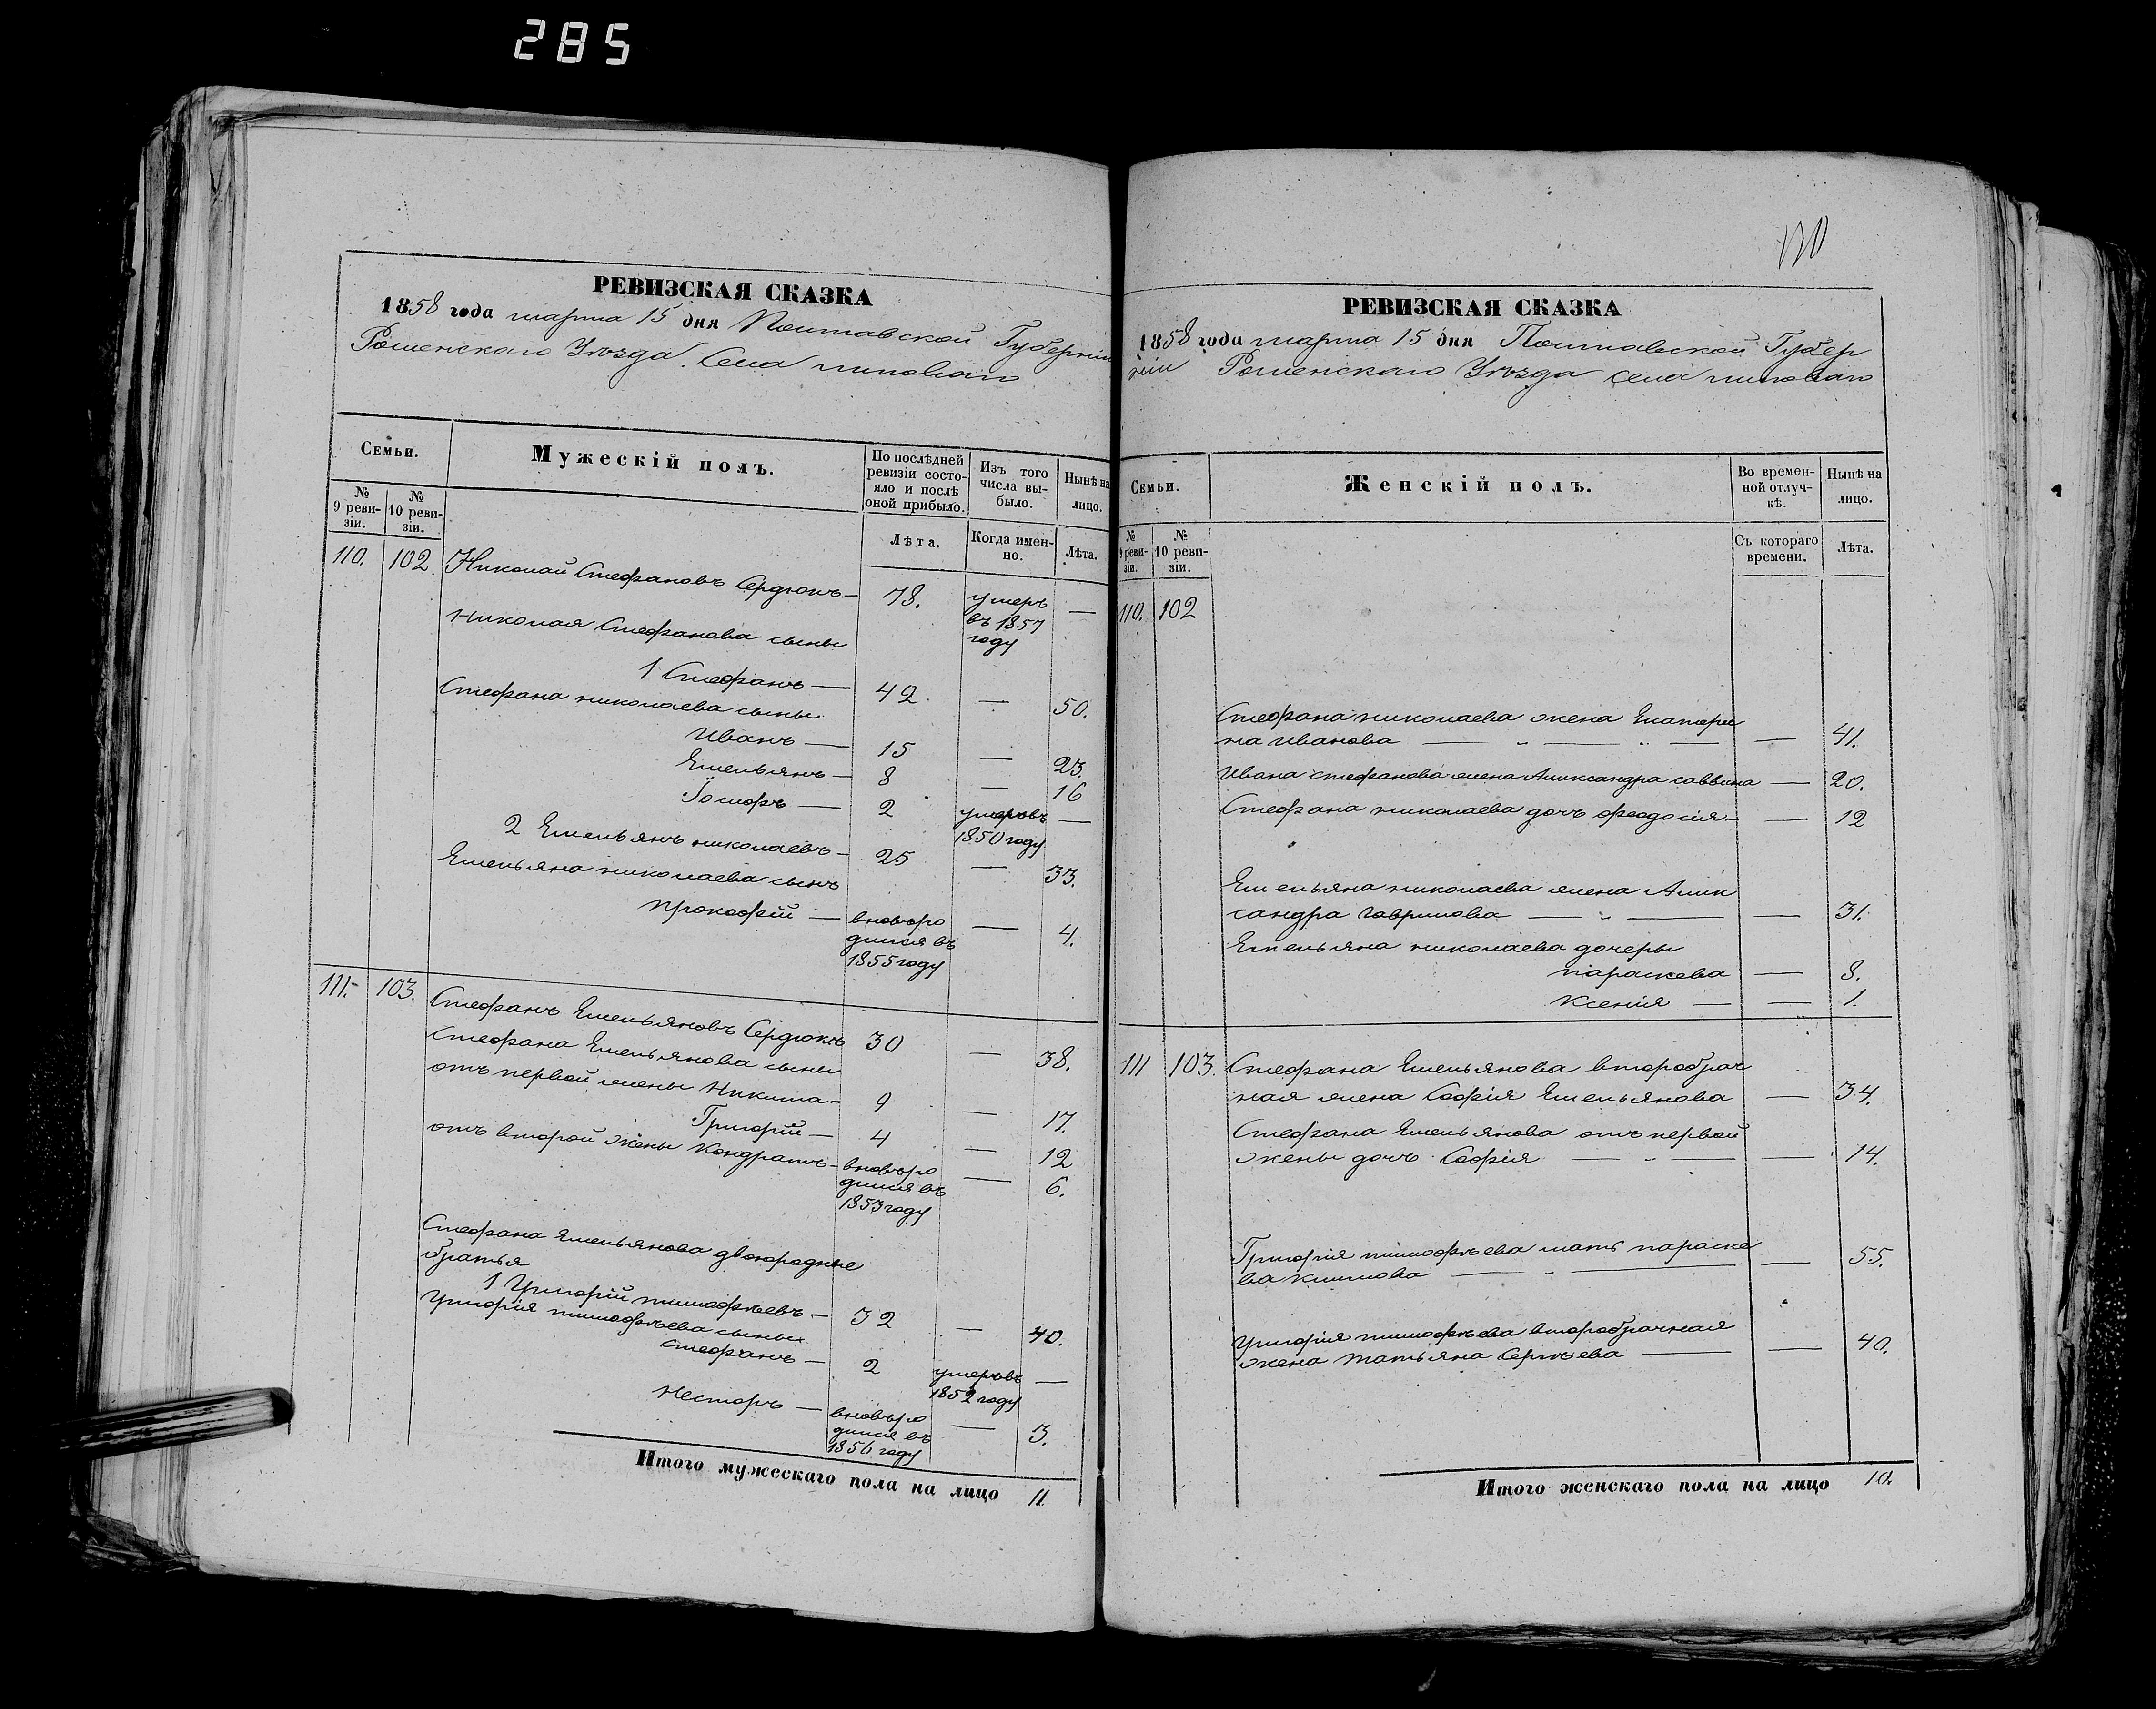 285
РЕВИЗСКАЯ СКАЗКА
1858 года марта 15 дня Полтавской Губерніи
Роменскаго Уѣзда. Села липоваго
Семьи.
Мужескій полъ.
По послѣдней ревизіи состо-
яло и послѣ оной прибыло.
Изъ того числа вы-
было.
Нынѣ на лицо.
№ 9 реви-
зіи.
№ 10 реви-
зіи.
Лѣта.
Когда имен-
но.
Лѣта.
110. 102. Николай Стефановъ Сердюкъ — 78. умеръ —
въ 1857
году
Николая Стефанова сыны
1 Стефанъ — 42. — 50.
Стефана николаева сыны
Иванъ — 15 — 23.
Емельянъ — 8 — 16
Іосифъ — 2 умеръ въ —
1850 году
2 Емельянъ николаевъ — 25 — 33.
Емельяна николаева сынъ
Прокофій — вновь ро — 4.
дился въ
1855 году
111. 103. Стефанъ Емельяновъ Сердюкъ 30 — 38.
Стефана Емельянова сыны
отъ первой жены Никита — 9 — 17.
Григорій — 4 — 12
отъ второй жены Кондратъ — вновь ро — 6.
дился въ
1853 году
Стефана Емельянова двоюродные
братья
1 Григорій тимофѣевъ — 32 — 40.
Григорія тимофѣева сыны
Стефанъ — 2 умеръ въ —
1852 году
Несторъ — вновь ро — 3.
дился въ
1856 году
Итого мужескаго пола на лицо 11.
РЕВИЗСКАЯ СКАЗКА
1858 года марта 15 дня Полтавской Губер
ніи Роменскаго Уѣзда села липоваго
Семьи.
Женскій полъ.
Во времен-
ной отлуч-
кѣ.
Нынѣ на лицо.
№ 9 реви-
зіи.
№ 10 реви-
зіи.
Съ котораго времени.
Лѣта.
110. 102
Стефана николаева жена Екатери
на Иванова — „ — „ — — 41.
Ивана стефанова жена Александра саввина — 20.
Стефана николаева дочь феодосія — — 12
Емельяна николаева жена Алек
сандра гаврилова — „ — — 31.
Емельяна николаева дочеры
параскева — 8.
Ксенія — — 1.
111 103. Стефана Емельянова второбрач
ная жена Софія Емельянова — 34.
Стефана Емельянова отъ первой
жены дочь Софія — „ — — 14.
Григорія тимофѣева мать параске
ва климова — „ — — 55.
Григорія тимофѣева второбрачная
жена татьяна Сергѣева — — 40.
Итого женскаго пола на лицо 10.